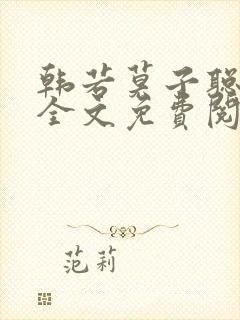 韩若莫子聪
全文免费阅
范莉